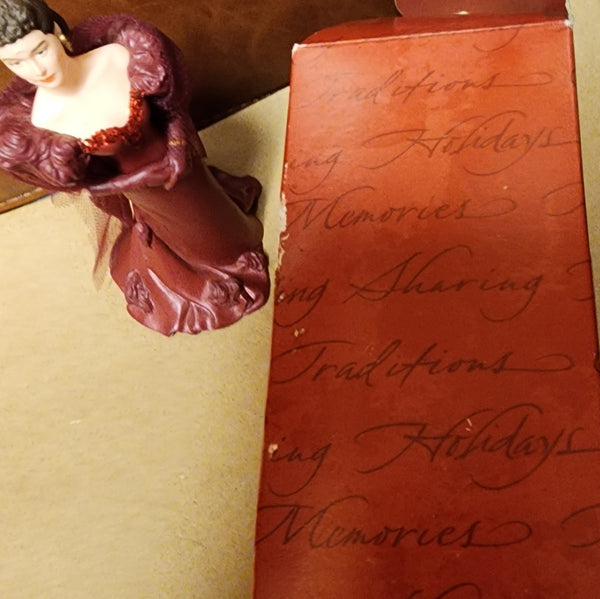 Traditions
ing Holidays
Memories
ing Sharing
Traditions
ing Holidays
Memories